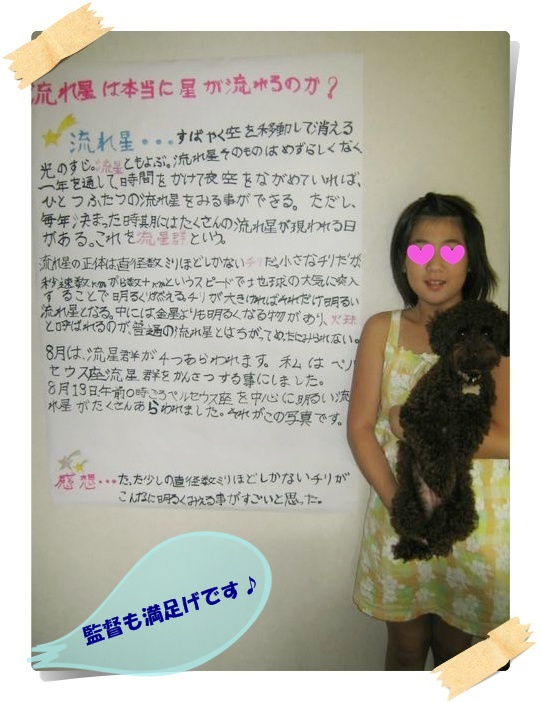 流れ星は本当に星が流れるのか?
流れ星・・・すばやく空を移動して消える
光のすじ。流星ともよぶ。流れ星そのものはめずらしくなく
一年を通して時間をかけて夜空をながめていれば、
ひとつふたつの流れ星をみる事ができる。ただし、
毎年決まった時期にはたくさんの流れ星が現われる日
がある。これを流星群という。
流れ星の正体は直径数ミリほどしかないチリだ。小さなチリだが
秒速数kmから数十kmというスピードで地球の大気に突入
することで明るく燃える。チリが大きければそれだけ明るい
流れ星となる。中には金星よりも明るくなる物があり、火球
と呼ばれるのが、普通の流れ星とはちがってめったにみられない。
8月は、流星群が4つあらわれます。私はペル
セウス座流星群をかんさつする事にしました。
8月13日午前0時ごろペルセウス座を中心に明るい流
れ星がたくさんあらわれました。それがこの写真です。
感想・・・たった少しの直径数ミリほどしかないチリが
こんなに明るくみえる事がすごいと思った。
監督も満足げです♪